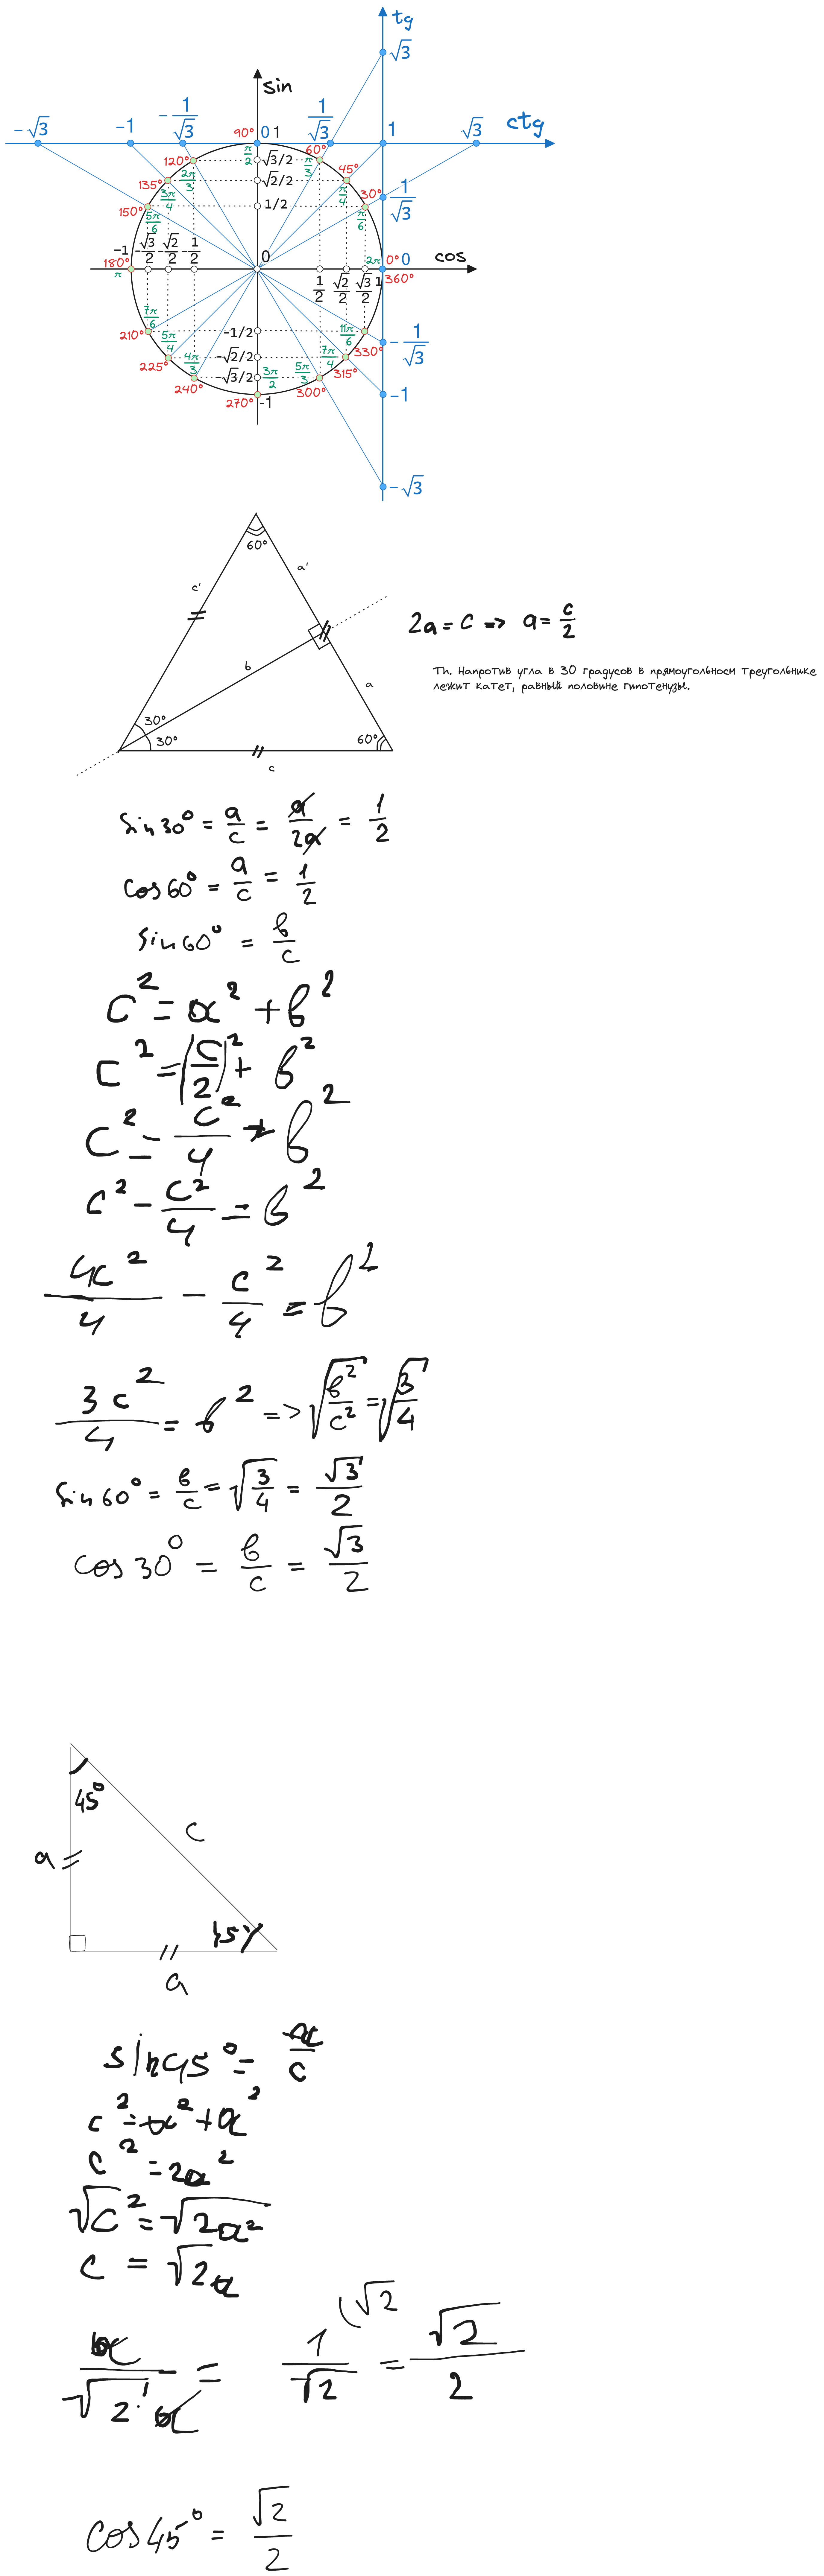 tg
√3
sin
-√3 -1 -1/√3 90° 0 1 1/√3 1 √3 ctg
120° π/2 √3/2 π/3 60°
135° 2π/3 √2/2 π/4 45°
150° 3π/4 1/2 π/6 30° 1/√3
5π/6
-1 -√3/2 -√2/2 -1/2 0 2π 0° 0 cos
180° π 1/2 √2/2 √3/2 1 360°
7π/6 11π/6
210° 5π/4 -1/2 7π/4 330° -1/√3
225° 4π/3 -√2/2 5π/3 315°
240° -√3/2 3π/2 300°
270° -1 -1
-√3
60°
c' a'
2a = c => a = c/2
b
Th. Напротив угла в 30 градусов в прямоугольном треугольнике
лежит катет, равный половине гипотенузы.
a
30°
30° 60°
c
sin30° = a/c = a/2a = 1/2
cos60° = a/c = 1/2
sin60° = b/c
c² = a² + b²
c² = (c/2)² + b²
c² = c²/4 + b²
c² - c²/4 = b²
4c²/4 - c²/4 = b²
3c²/4 = b² => √(b²/c²) = √(3/4)
sin60° = b/c = √(3/4) = √3/2
cos30° = b/c = √3/2
45°
c
a
45°
a
sin45° = a/c
c² = a² + a²
c² = 2a²
√c² = √2a²
c = √2a
a/√2·a = 1/√2 (√2 = √2/2
cos45° = √2/2